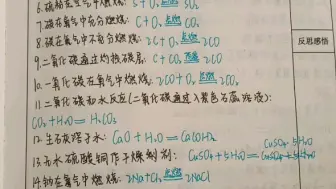 6.硫粉在空气中燃烧: S+O₂ 点燃 SO₂
7.碳在氧气中充分燃烧: C+O₂ 点燃 CO₂
8.碳在氧气中不充分燃烧: 2C+O₂ 点燃 2CO
反思感悟
9.二氧化碳通过灼热碳层: C+CO₂ 高温 2CO
10.一氧化碳在氧气中燃烧: 2CO+O₂ 点燃 2CO₂
11.二氧化碳和水反应(二氧化碳通入紫色石蕊溶液):
CO₂+H₂O=H₂CO₃
12.生石灰溶于水: CaO+H₂O=Ca(OH)₂
CuSO₄·5H₂O
13.无水硫酸铜作干燥剂: CuSO₄+5H₂O=
14.钠在氯气中燃烧: 2Na+Cl₂ 点燃 2NaCl